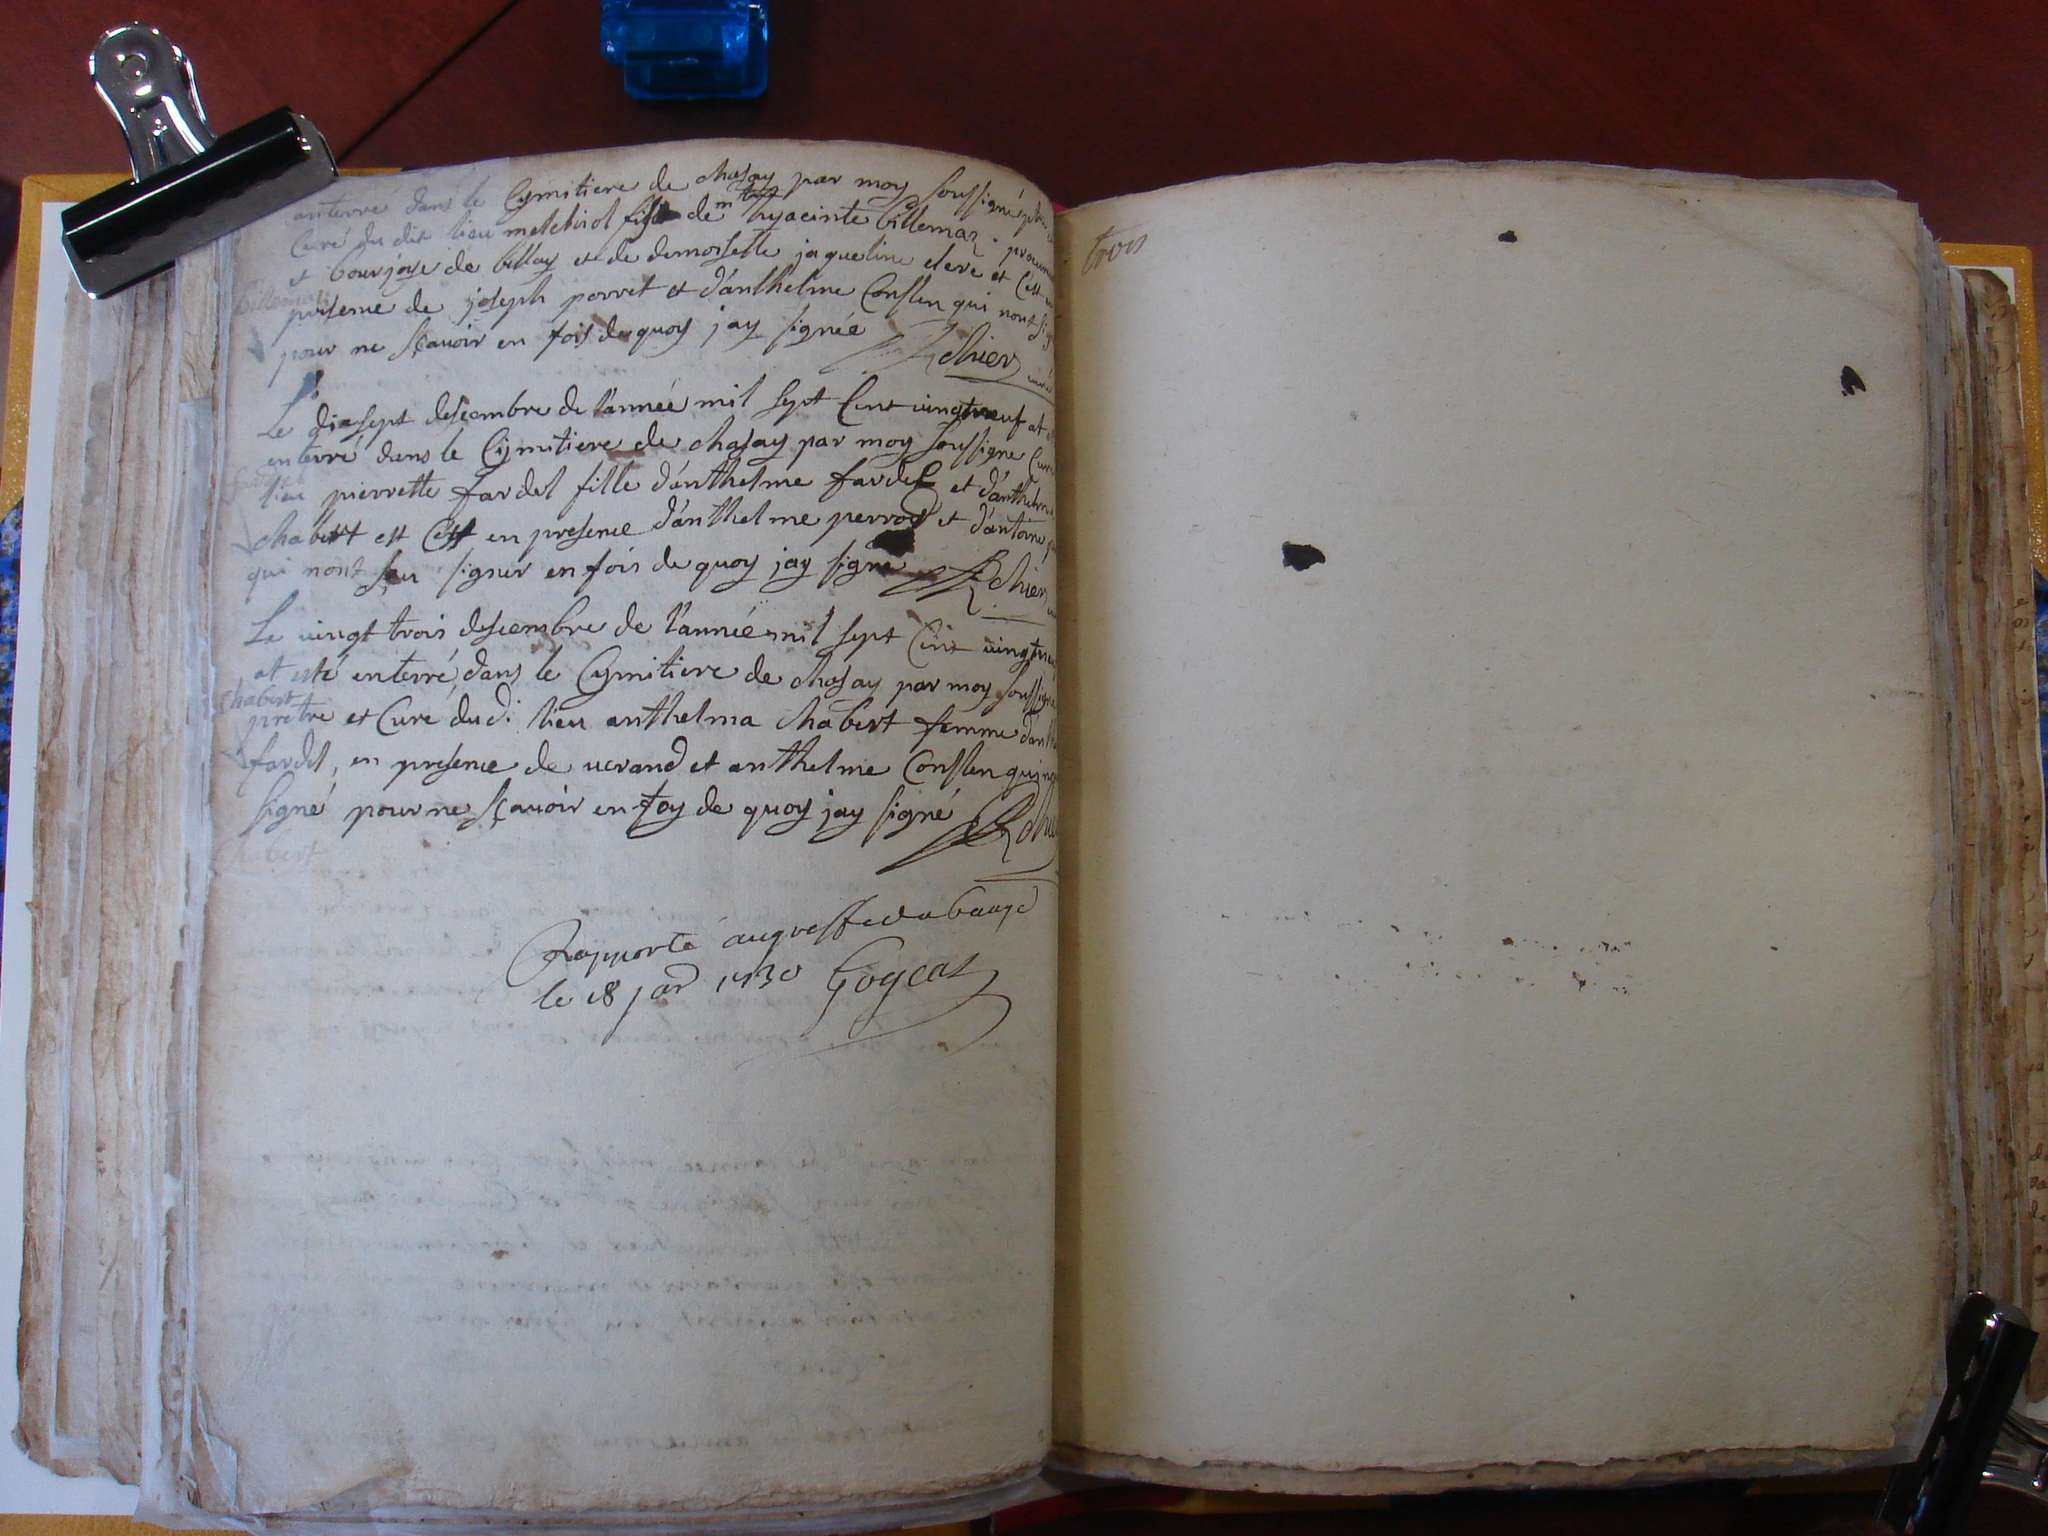 anterré dans le Cymitiere de chasay par moy soussigné
Curé du dit lieu melchiol fils de m hyacinte billemaz. procureur
et bourjoys de bellay et de demoiselle jaqueline clerc et C'est en
presence de joseph porret et d'anthelme Conslen qui nont
pour ne sçavoir en fois de quoy jay signée
Le diasept descembre de l'année mil sept Cent vingtneuf at
enterré dans le Cymitiere de chasay par moy soussigné Curé
lieu pierrette fardel fille d'anthelme fardel et d'anthelme
chabert est C'est en presence d'anthelme perrod et d'antoine
qui nont sçu signer en fois de quoy jay signé
Le vingt trois descembre de l'année mil sept Cent vingtneuf
at esté enterré dans le Cymitiere de chasay par moy soussigné
Chabert
pretre et Curé dud. lieu anthelma chabert femme
fardel, en presence de verand et anthelme Conslen qui
signé pour ne sçavoir en foy de quoy jay signé
Chabert
Rapporté au greffe
le 18 janr 1730
trois